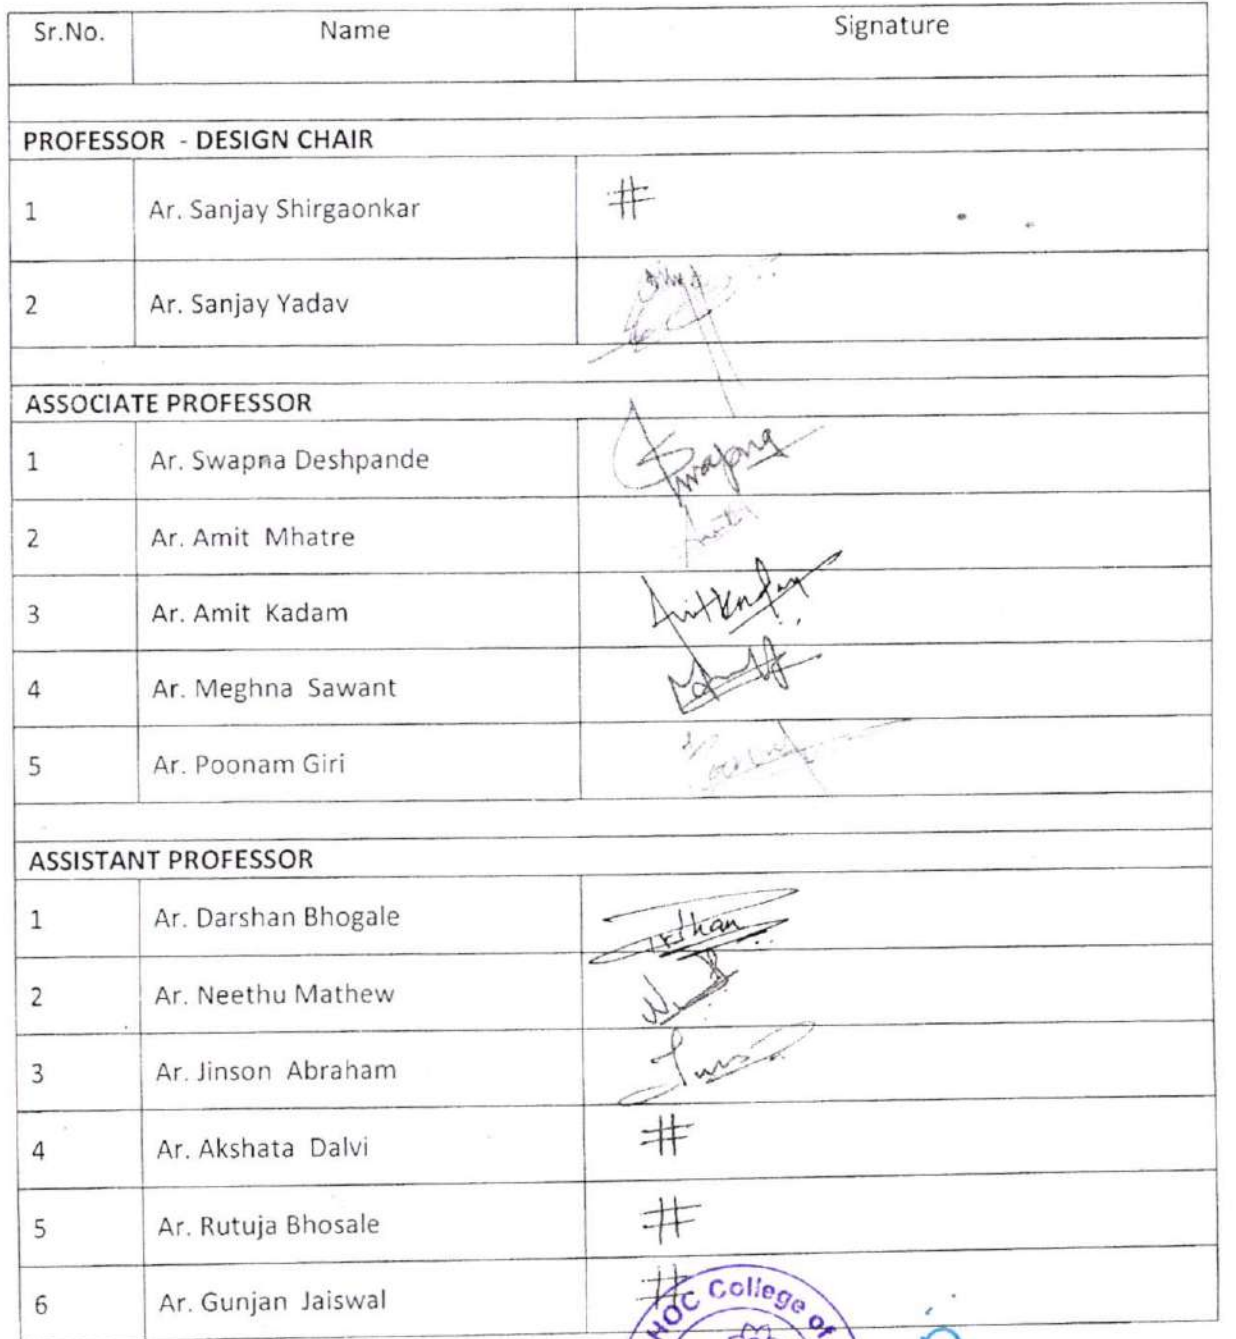 Sr.No. Name Signature
PROFESSOR - DESIGN CHAIR
1 Ar. Sanjay Shirgaonkar #
2 Ar. Sanjay Yadav
ASSOCIATE PROFESSOR
1 Ar. Swapna Deshpande Swapna
2 Ar. Amit Mhatre
3 Ar. Amit Kadam
4 Ar. Meghna Sawant
5 Ar. Poonam Giri
ASSISTANT PROFESSOR
1 Ar. Darshan Bhogale
2 Ar. Neethu Mathew
3 Ar. Jinson Abraham
4 Ar. Akshata Dalvi #
5 Ar. Rutuja Bhosale #
6 Ar. Gunjan Jaiswal #
HOC College of